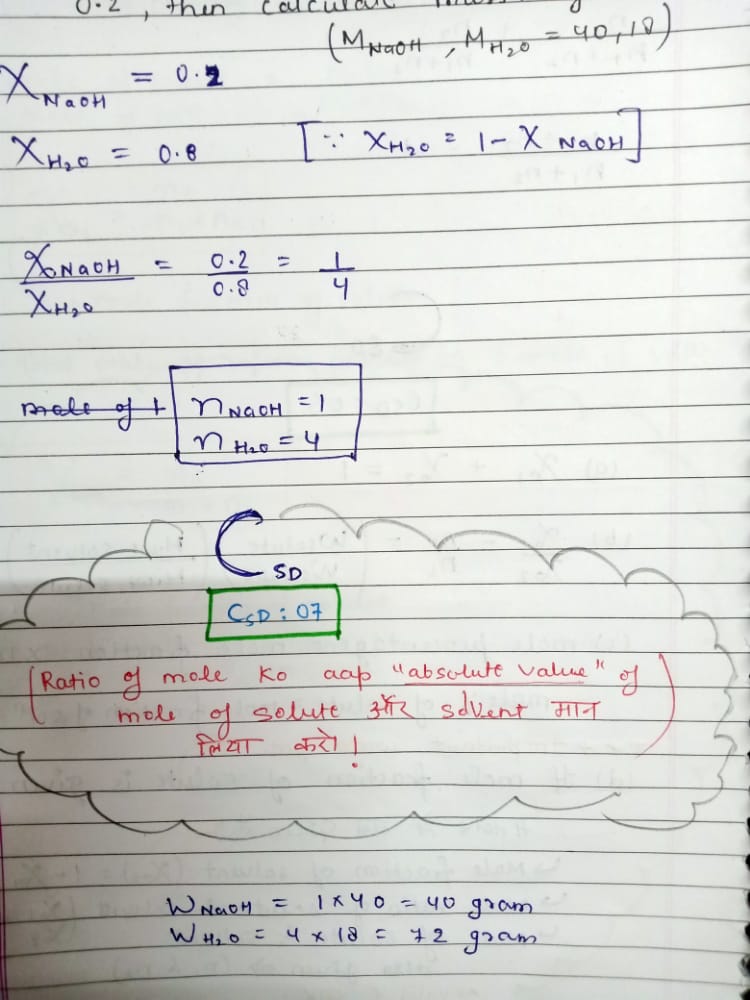 0.2, then calculate
(M NaOH, M H₂O = 40,18)
X NaOH = 0.2
X H₂O = 0.8 [∵ X H₂O = 1 - X NaOH]
X NaOH / X H₂O = 0.2/0.8 = 1/4
mole of
n NaOH = 1
n H₂O = 4
C SD
C SD : 07
(Ratio of mole ko aap "absolute value" of
mole of solute और solvent मान
लिया करो!)
W NaOH = 1 x 40 = 40 gram
W H₂O = 4 x 18 = 72 gram